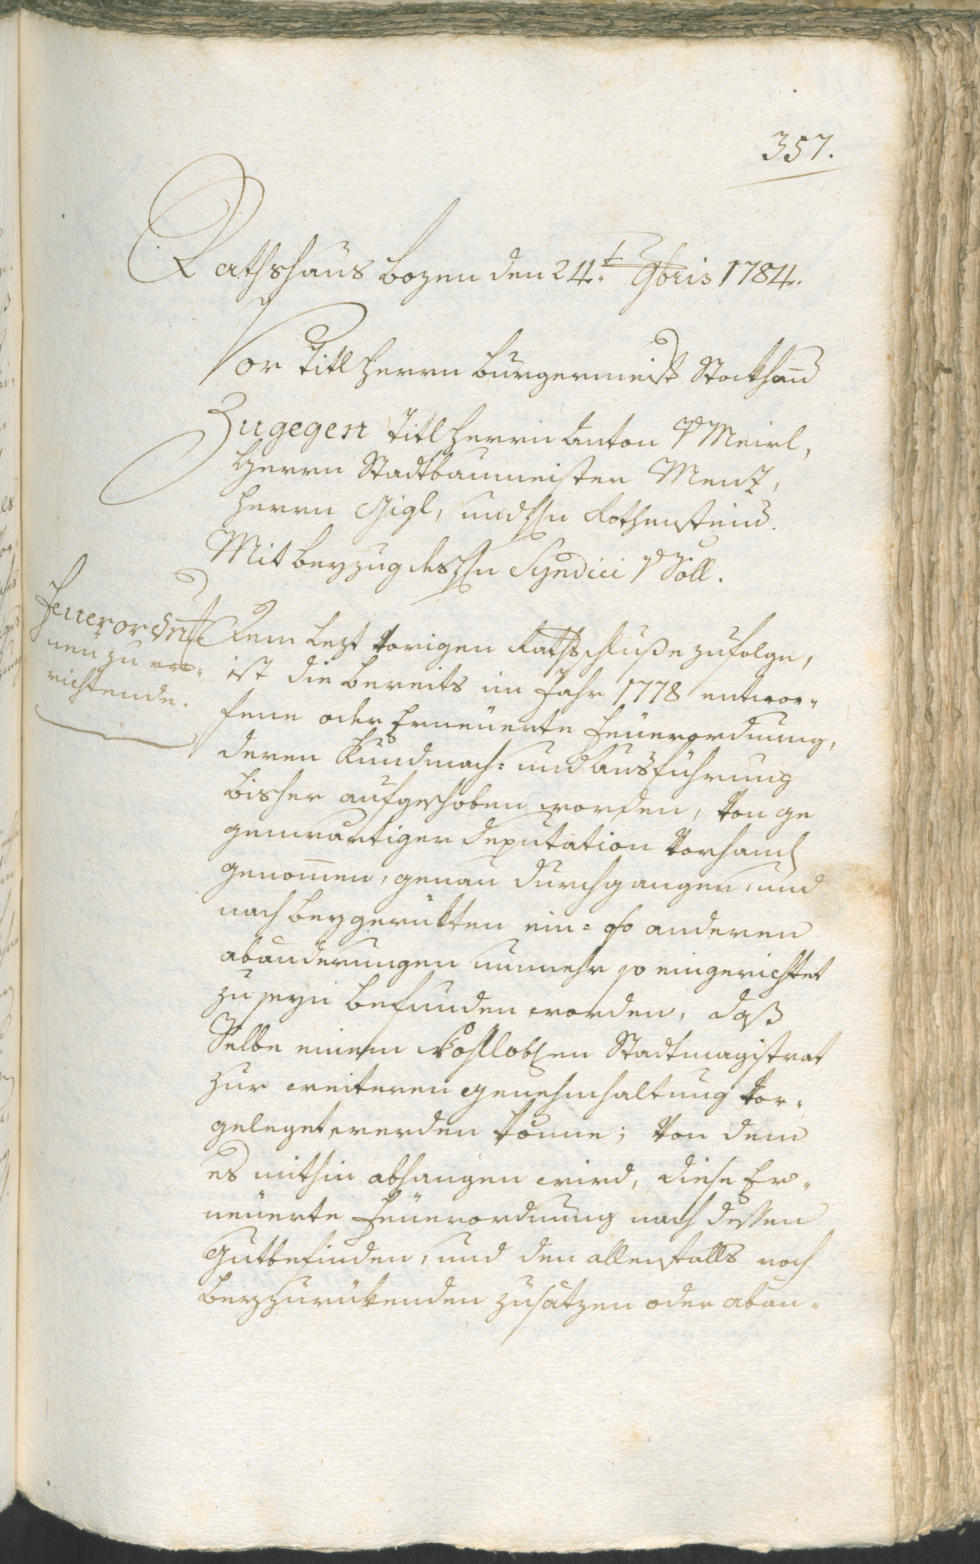 357.
Rathshaus Bozen den 24.t 9bris 1784.
Vor Titl Herrn Burgermeistr Stockham̅
Zugegen Titl Herrn Anton v Meirl,
Herrn Stadtbaumeister Menz,
Herrn Gigl, und Hn Rothenstein.
Mit beyzug des Hn Syndici v Söll.
Feuerordng
neü zu er-
richtende.
Dem lezt vorigen Rathsschluße zufolge,
ist die bereits im Jahr 1778 entwor-
fene oder Erneuerte Feuerordnung,
deren Kundmach- und Ausführung
bisher aufgeschoben worden, von ge
genwärtiger Deputation vorhand
genom̅en, genau durchgangen, und
nach beygerukten ein- so anderen
abänderungen nunmehr so eingerichtet
zu seyn befunden worden, daß
Selbe einem Wohlloblen Stadtmagistrat
zur weiteren genehmhaltung vor-
geleget werden könne; von dem
es mithin abhangen wird, diese Er-
neuerte Feuerordnung nach dessen
Gutbefinden, und den allenfalls noch
beyzurukenden zusätzen oder abän-